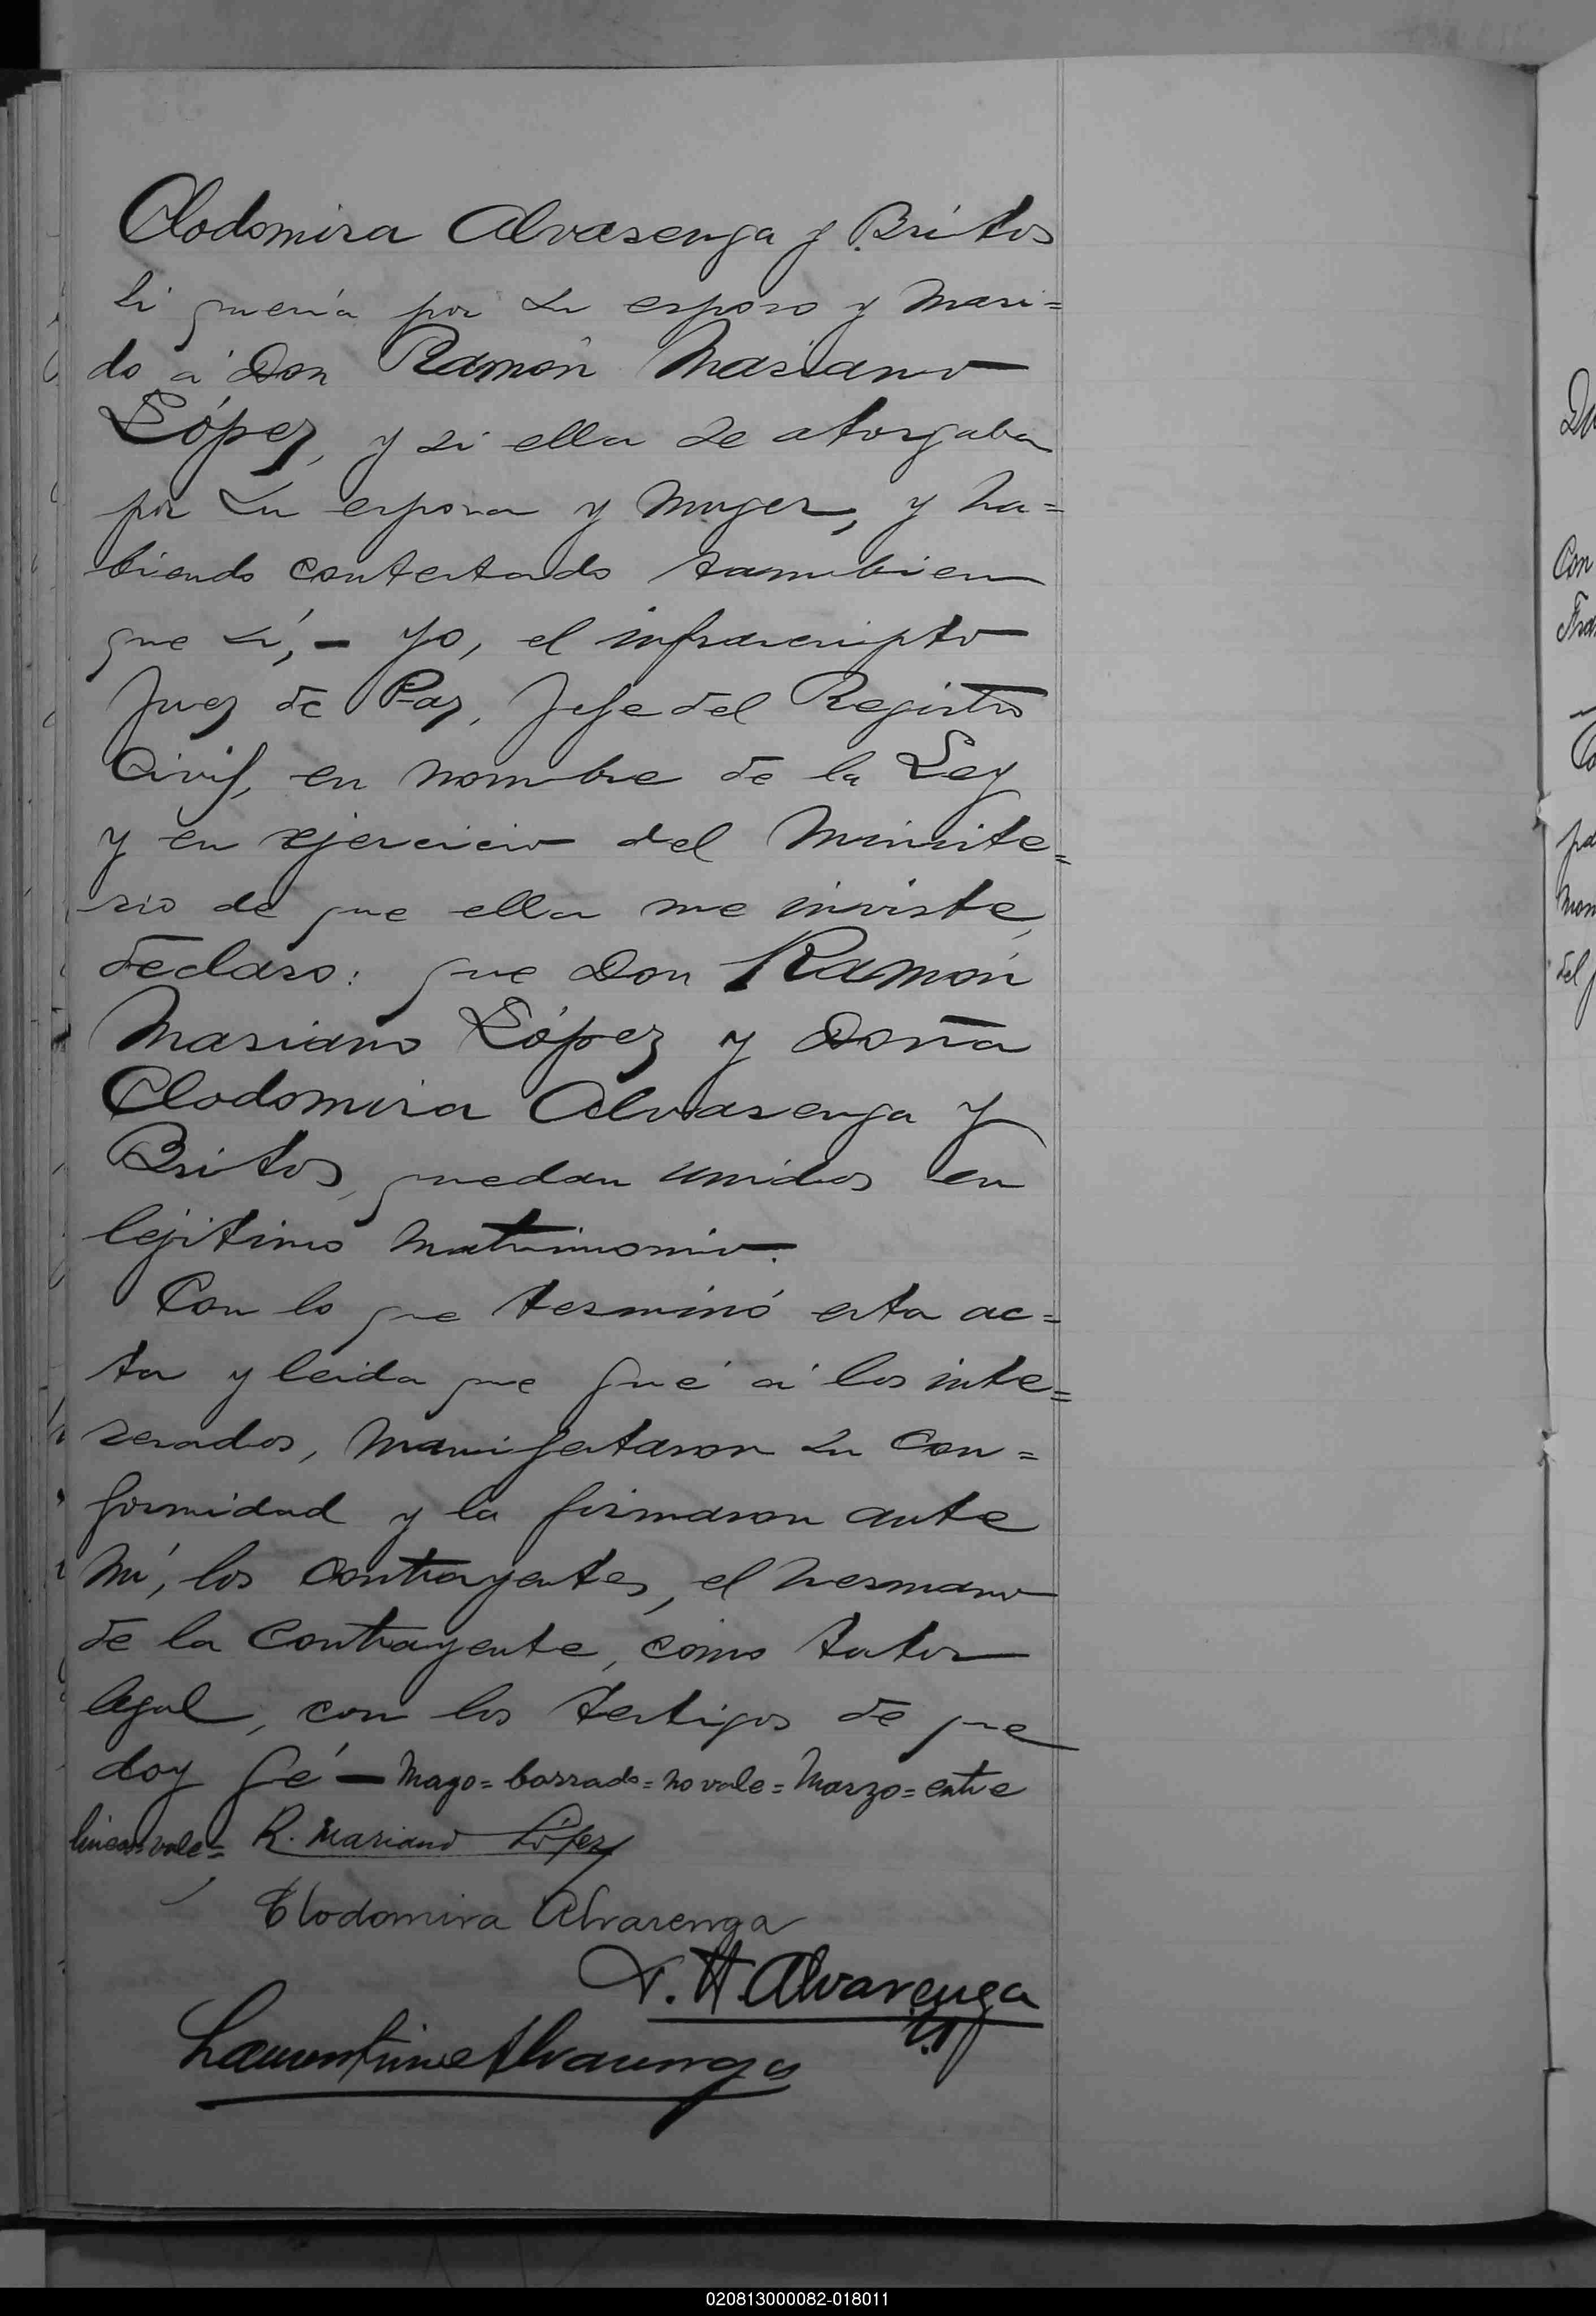 Clodomira Alvarenga y Britos
si quería por su esposo y mari=
do á Don Ramón Mariano
López, y si ella se otorgaba
por su esposa y muger, y ha=
biendo contestado tambien
que sí,- Yo, el infrascripto
Juez de Paz, Jefe del Registro
Civil, en nombre de la Ley
y en ejercicio del Ministe=
rio de que ella me inviste,
declaro: que Don Ramón
Mariano López y Doña
Clodomira Alvarenga y
Britos, quedan unidos en
lejítimo matrimonio.
Con lo que terminó esta ac=
ta y leida que fué á los inte=
resados, manifestaron su con=
formidad y la firmaron ante
mí, los contrayentes, el hermano
de la contrayente, como tutor
legal, con los testigos de que
doy fé - Mayo= borrado= no vale= Marzo= entre
lineas vale=
R. Mariano López
Clodomira Alvarenga
H. Alvarenga
Laurentino Alvarenga
Da
Con
Fra
pa
mon
del
020813000082-018011